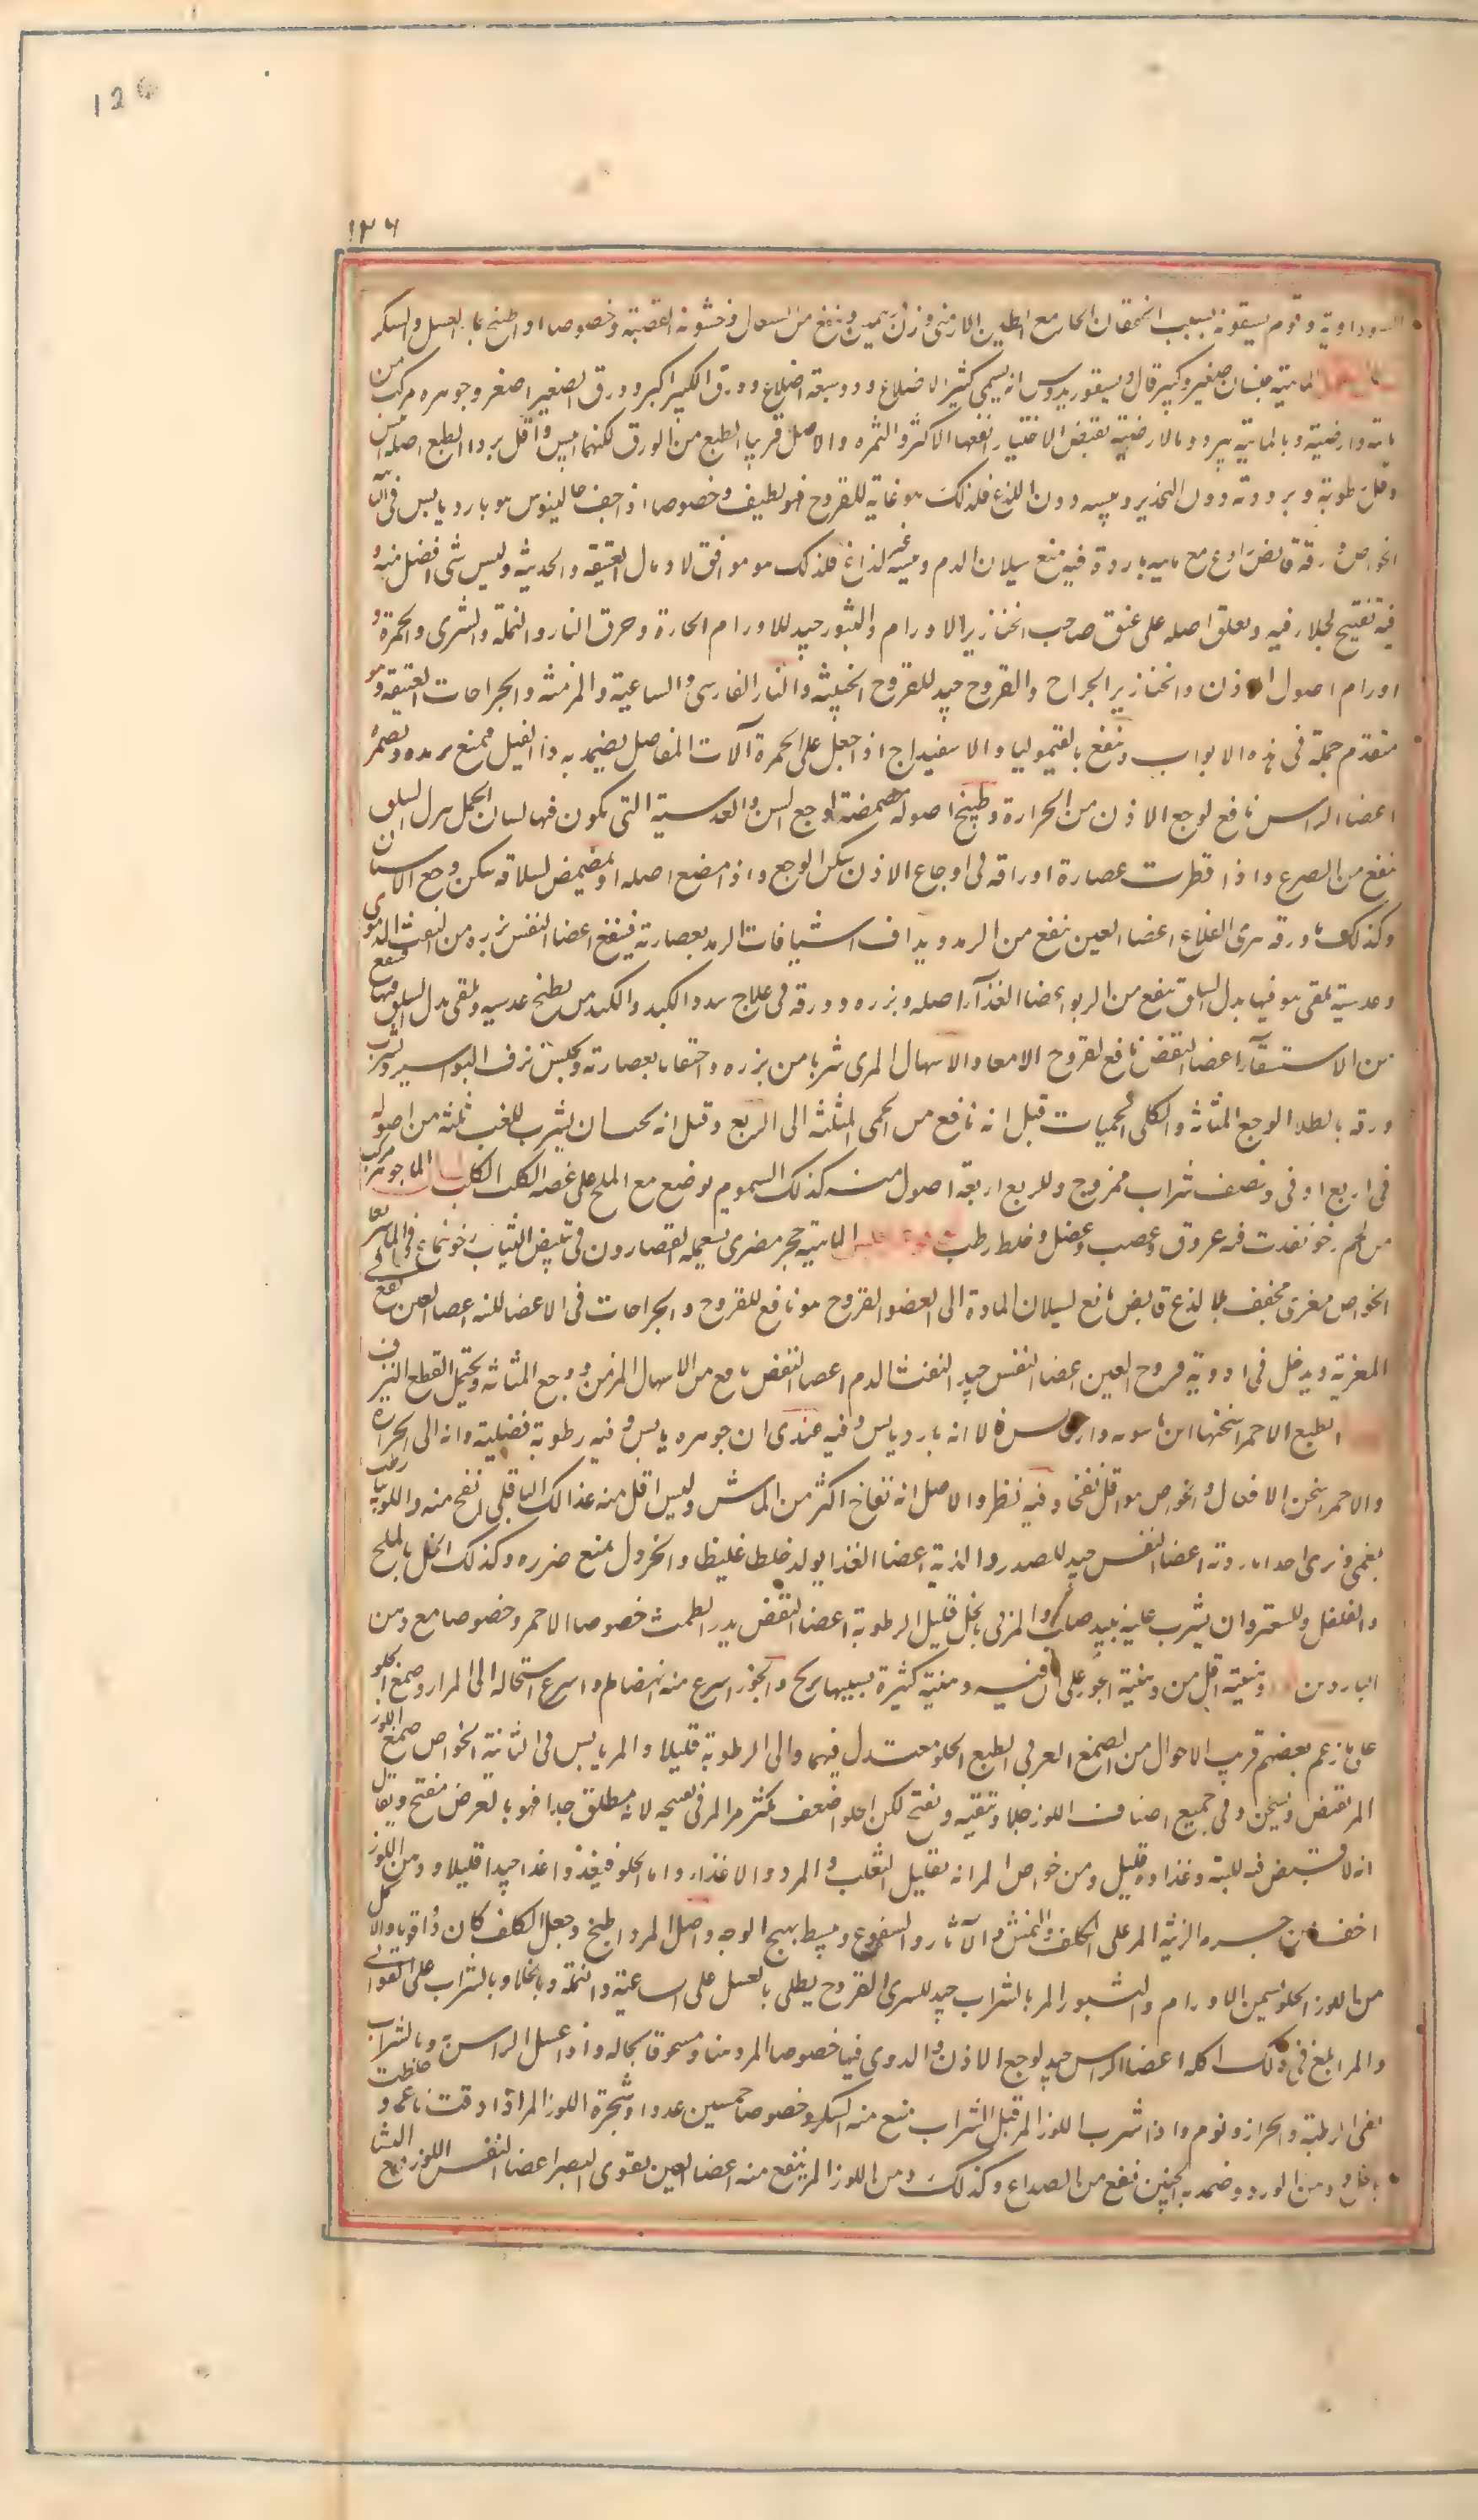 126
۱۲۶
السوداوية وقوم يسقونه بسبب الخفقان الحار مع الطين الارمنى وزن درهمين وينفع من السعال وخشونة القصبة وخصوصا اذا طبخ بالعسل والسكر
لسان الحمل الماهية جنسان صغير وكبير قال ديسقوريدوس انه يسمى كثير الاضلاع وذو سبعة اضلاع وورق الكبير اكبر وورق الصغير اصغر وجوهره مركب من
مائية وارضية وبالمائية يبرد وبالارضية يقبض الاختيار انفعها الاكثر والثمره والاصل قريب الطبع من الورق لكنهما ايبس واقل بردا الطبع اصله ايبس
واقل رطوبة وبرودته دون التخدير ويبسه دون اللذع فلذلك هو غاية للقروح فهو لطيف وخصوصا اذا جف جالينوس هو بارد يابس فى الثانية
الخواص ورقه قابض رادع مع مائيه باردة فيه منع سيلان الدم ويبسه غير لذاع فلذلك هو موافق للادمال العتيقة والحديثة وليس شى افضل منه و
فيه تفتيح لجلاء فيه ويعلق اصله على عنق صاحب الخنازير الاورام والبثور جيد للاورام الحارة وحرق النار والنملة والشرى والحمرة و
اورام اصول الاذن والخنازير الجراح والقروح جيد للقروح الخبيثة والنار الفارسى والساعية والمزمنة والجراحات العتيقة وهو
متقدم جملة فى هذه الابواب وينفع بالقيموليا والاسفيداج اذا جعل على الحمرة آلات المفاصل يضمد به داء الفيل فيمنع تزيده ويضمره
اعضاء الراس نافع لوجع الاذن من الحرارة وطبيخ اصوله مضمضة لوجع السن والعدسية التى يكون فيها لسان الحمل بدل السلق
ينفع من الصرع واذا قطرت عصارة اوراقه فى اوجاع الاذن سكن الوجع واذا مضغ اصله او تمضمض لسلاقه سكن وجع الاسنان
وكذلك ماء ورقه يبرى القلاع اعضاء العين ينفع من الرمد ويداف اشيافات الرمد بعصارته فينفع اعضاء النفس بزره من النفث الدموى
وعدسية يلقى هو فيها بدل السلق ينفع من الربو اعضاء الغذآ اصله وبزره وورقه فى علاج سدد الكبد والكبد من يطبخ عدسيه ويلقى بدل السلق فيها فينفع
من الاستسقآ اعضاء النفض نافع لقروح الامعاء والاسهال المرى شربا من بزره واحتقانا بعصارته ويحبس نزف البواسير ويشرب
ورقه بالطلا لوجع المثانة والكلى الحميات قيل انه نافع من الحمى المثلثة الى الربع وقيل انه يحسان يشرب للغب ثلثة من اصوله
فى اربع اواق ونصف شراب ممزوج وللربع اربعة اصول منه كذلك السموم يوضع مع الملح على عضه الكلب الكلب الماهية جوهره مركب
من لحم رخو نفذت فيه عروق وعصب وعضل وخلط رطب الماهية حجر مصرى يستعمله القصارون فى تبييض الثياب رخو ينماع فى الماء سريعا
الخواص مغرى مجفف بلا لذع قابض مانع لسيلان المادة الى العضو القروح هو نافع للقروح والجراحات فى الاعضاء اللينه اعضاء العين يقع فى
المغرية ويدخل فى ادوية قروح العين اعضاء النفس جيد لنفث الدم اعضاء النفض نافع من الاسهال المزمن ووجع المثانة ويحتمل لقطع النزف
الطبع الاحمر اسخنها ابن ماسويه لا انه بارد يابس وفيه عندى ان جوهره يابس وفيه رطوبة فضلية وانه الى الحرارة
والاحمر اسخن الافعال والخواص هو اقل نفخا وفيه نظر والاصل انه نفاخ اكثر من الماش وليس اقل منه غذا لكن الباقلى انفخ منه واللوبيا رطب
بلغمى ويرى احلاما رديه اعضاء النفس جيد للصدر والذية اعضاء الغذا يولد خلطا غليظا والخردل يمنع ضرره وكذلك الخل بالملح
والفلفل وللسعتر وان يشرب عليه نبيد صلب والمربى بالخل قليل الرطوبة اعضاء النفض يدر الطمث خصوصا الاحمر وخصوصا مع دهن
الناردين ودهنيته اقل من دهنية الجوز على ان فيه دهنية كثيرة بسببها يزنخ والجوز اسرع منه انهضاما واسرع استحاله الى المرار وصمغ الحلو
على مازعم بعضهم قريب الاحوال من الصمغ العربى الطبع الحلو معتدل فيهما والى الرطوبة قليلا والمر يابس فى الثانية الخواص صمغ اللوز
المر يقبض ويسخن وفى جميع اصناف اللوز جلاء وتنقيه وتفتح لكن الحلو اضعف بكثير من المر فى تفتيحه لانه مطلق جدا فهو بالعرض مفتح ويقال
انه لا قبض فيه البتة وغذاوه قليل ومن خواص المر انه يقتل الثعلب والمر دواء لا غذاء واما الحلو فيغذو غذاء جيدا قليلا ودهن اللوز
اخف من جرمه الزينة المر على الكلف والنمش والآثار والسفوع ويبسط تهيج الوجه واصل المر اذا طبخ وجعل على الكلف كان دواء قويا والاكل
من اللوز الحلو يسمن الاورام والبثور المر بالشراب جيد للشرى القروح يطلى بالعسل على الساعية والنملة وبالخل او بالشراب على القوابى
والمر ابلغ فى ذلك اكله اعضاء الراس جيد لوجع الاذن والدوى فيها خصوصا المر دهنا ومسحوقا بحاله واذا غسل الراس به وبالشراب
نقى الرطبة والحزاز ونوم واذا شرب اللوز المر قبل الشراب منع منه السكر وخصوصا خمسين عددا وشجرة اللوز المر اذا دقت ناعما وخلطت
بالخل ودهن الورد وضمد به الجبين نفع من الصداع وكذلك دهن اللوز المر ينفع منه اعضاء العين يقوى البصر اعضاء النفس اللوز مع النشا